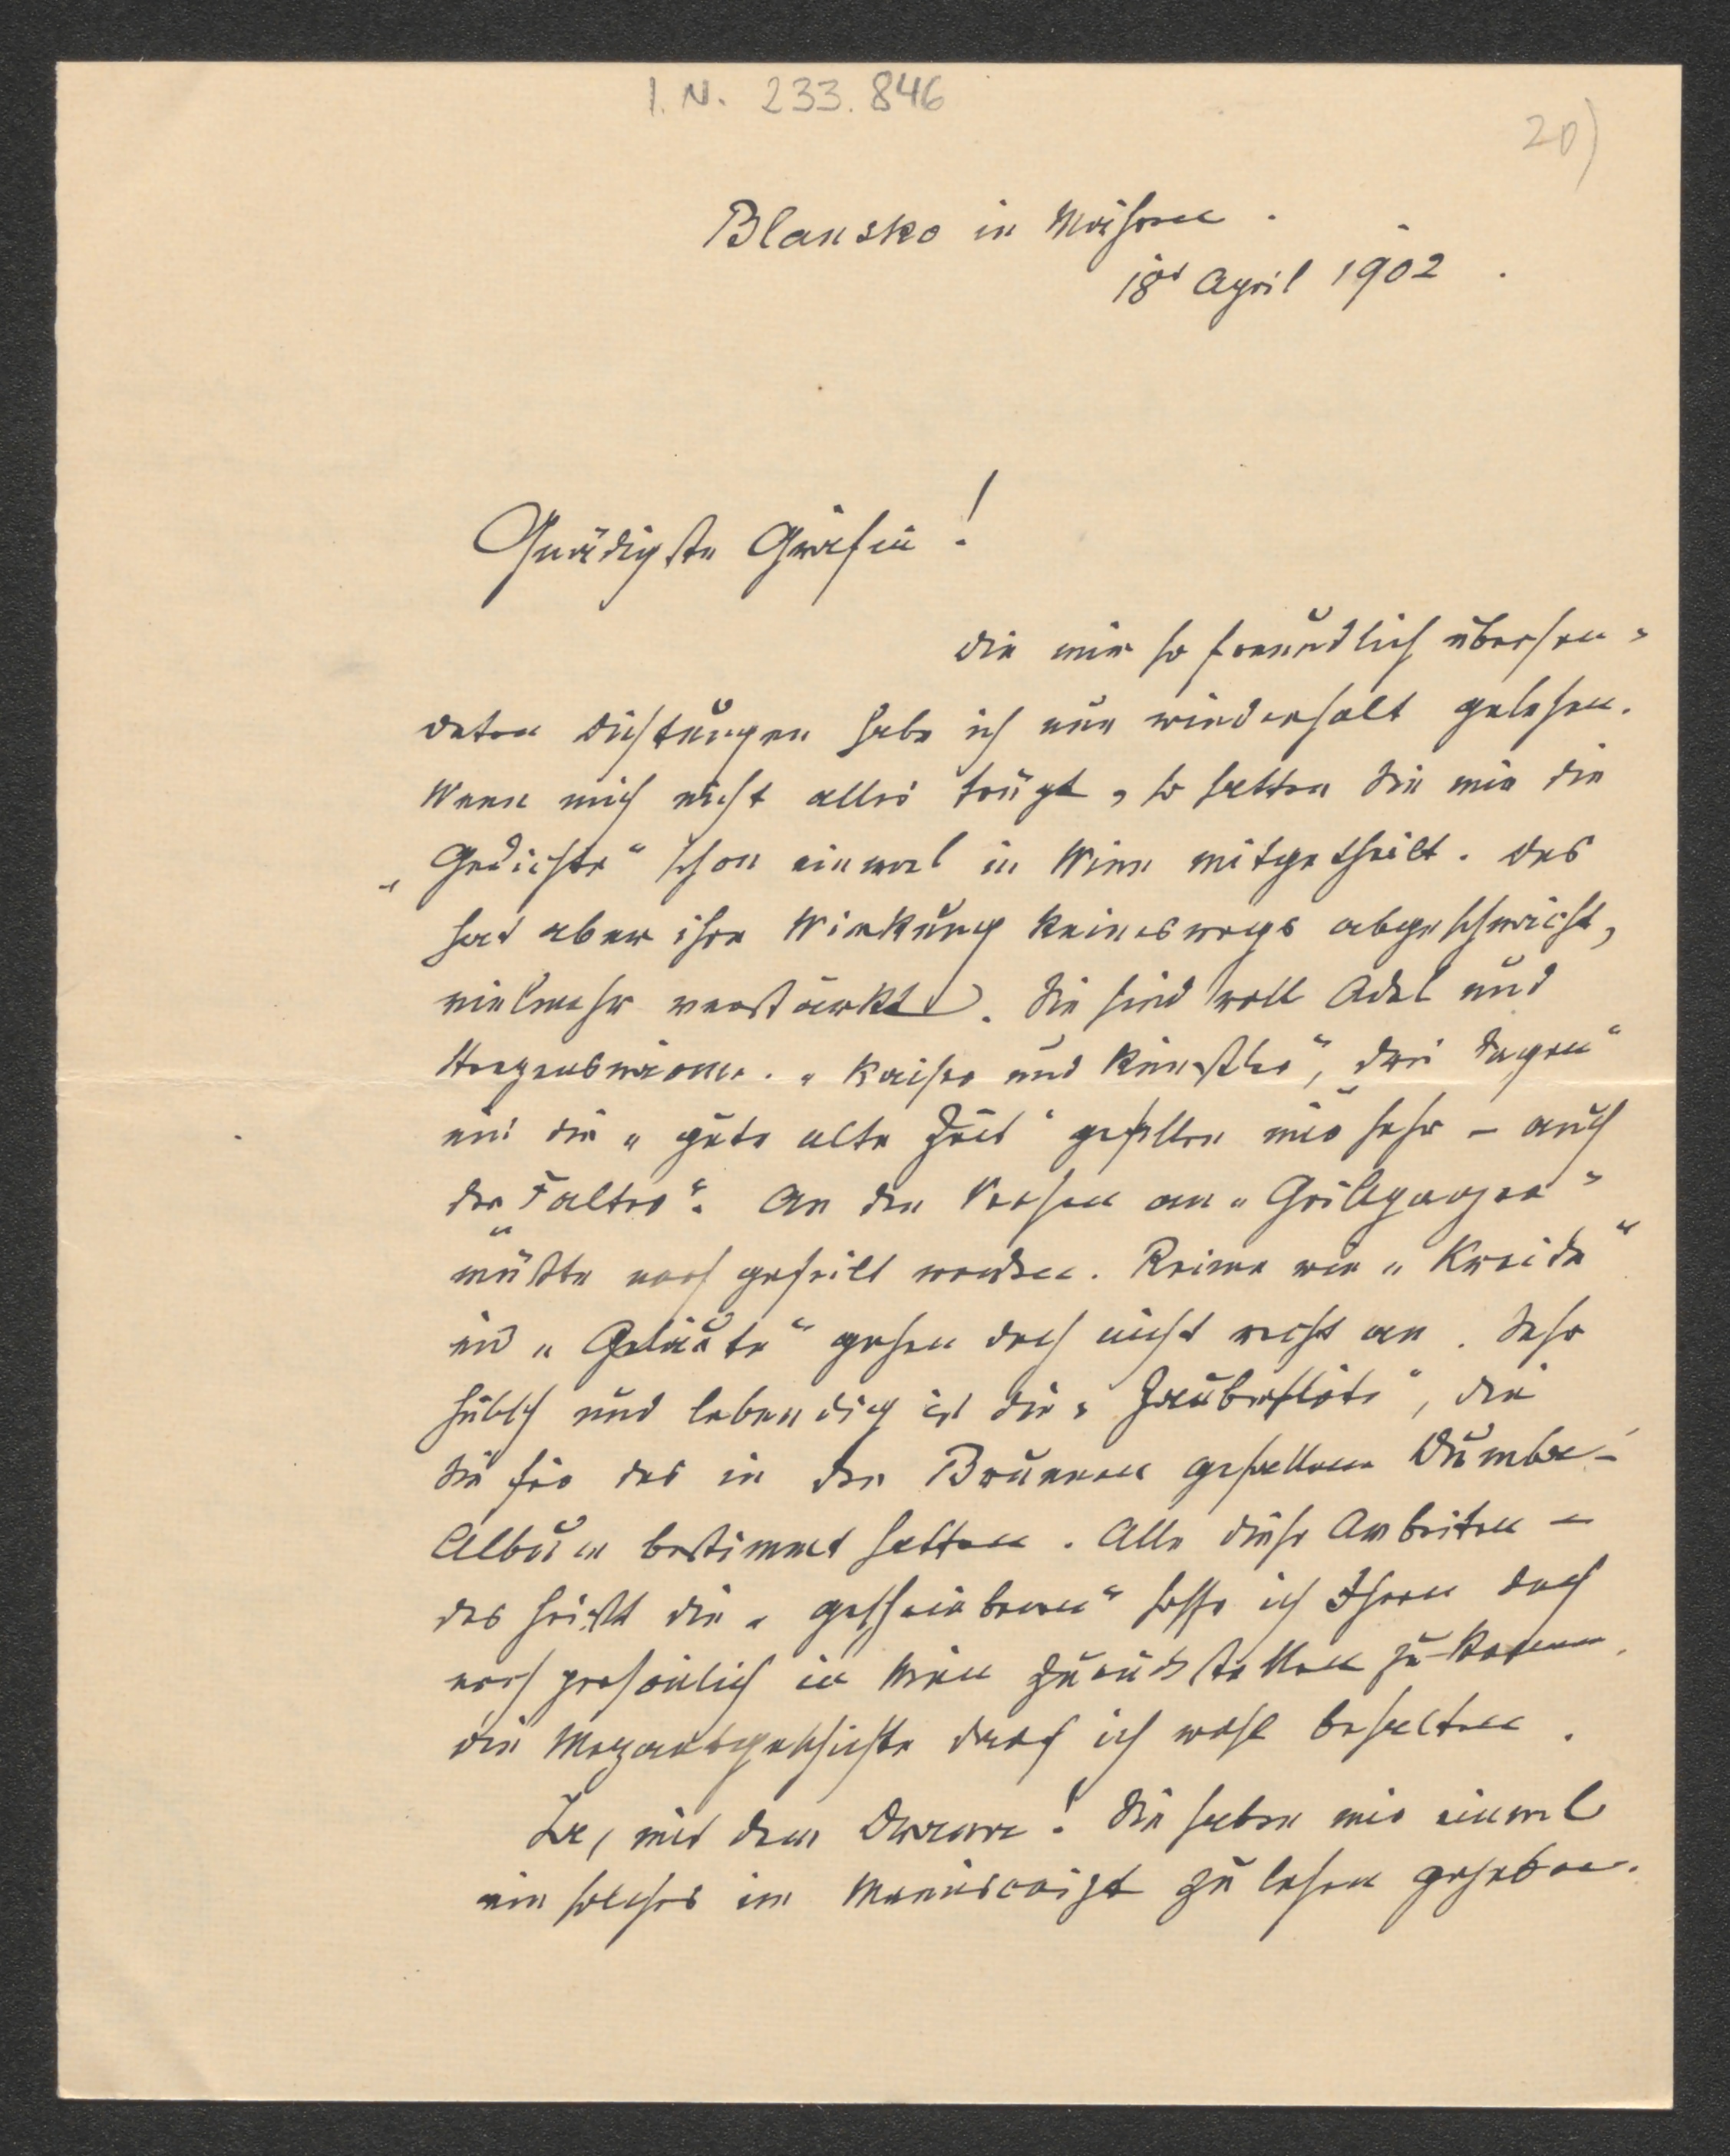 I. N. 233.846
20)
Blansko in Mähren.
18t April 1902.
Gnädigste Gräfin!
Die mir so freundlich übersen-
deten Dichtungen habe ich nun wiederholt gelesen.
Wenn mich nicht alles trügt, so hatten Sie mir die
„Gedichte“ schon einmal in Wien mitgetheilt. Das
hat aber ihre Wirkung keineswegs abgeschwächt,
vielmehr verstärkt. Sie sind voll Adel und
Herzenswärme. „Kaiser und Künstler“, „Drei Sagen“
und die „gute alte Zeit“ gefallen mir sehr – auch
der „Falter“. An den Versen an „Grillparzer“
müßte noch gefeilt werden. Reime wie „Kreide“
und „Geläute“ gehen doch nicht recht an. Sehr
hübsch und lebendig ist die „Zauberflöte“, die
Sie für das in den Brunnen gefallene Dumba-
Album bestimmt hatten. Alle diese Arbeiten –
das heißt die „geschriebenen“ hoffe ich Ihnen doch
noch persönlich in Wien zurückstellen zu können.
Die Mozartgeschichte darf ich wohl behalten.
Ja, mit dem Drama! Sie haben mir einmal
ein solches im Manuscript zu lesen gegeben.